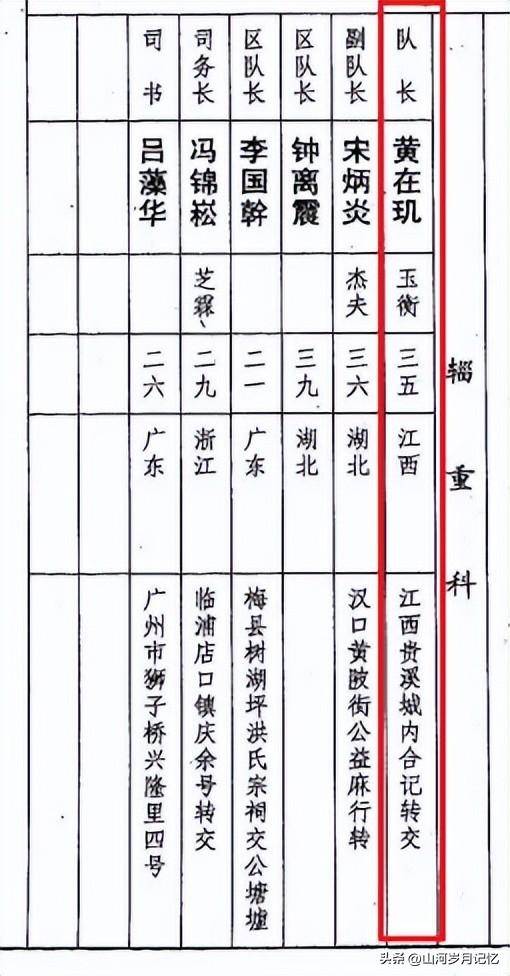 辎重科
队长 黄在玑 玉衡 三五 江西 江西贵溪城内合记转交
副队长 宋炳炎 杰夫 三六 湖北 汉口黄陂街公益麻行转
区队长 钟离震 三九 湖北
区队长 李国幹 二一 广东 梅县树湖坪洪氏宗祠交公塘墟
司务长 冯锦崧 芝霖 二九 浙江 临浦店口镇庆余号转交
司书 吕藻华 二六 广东 广州市狮子桥兴隆里四号
头条 @山河岁月记忆